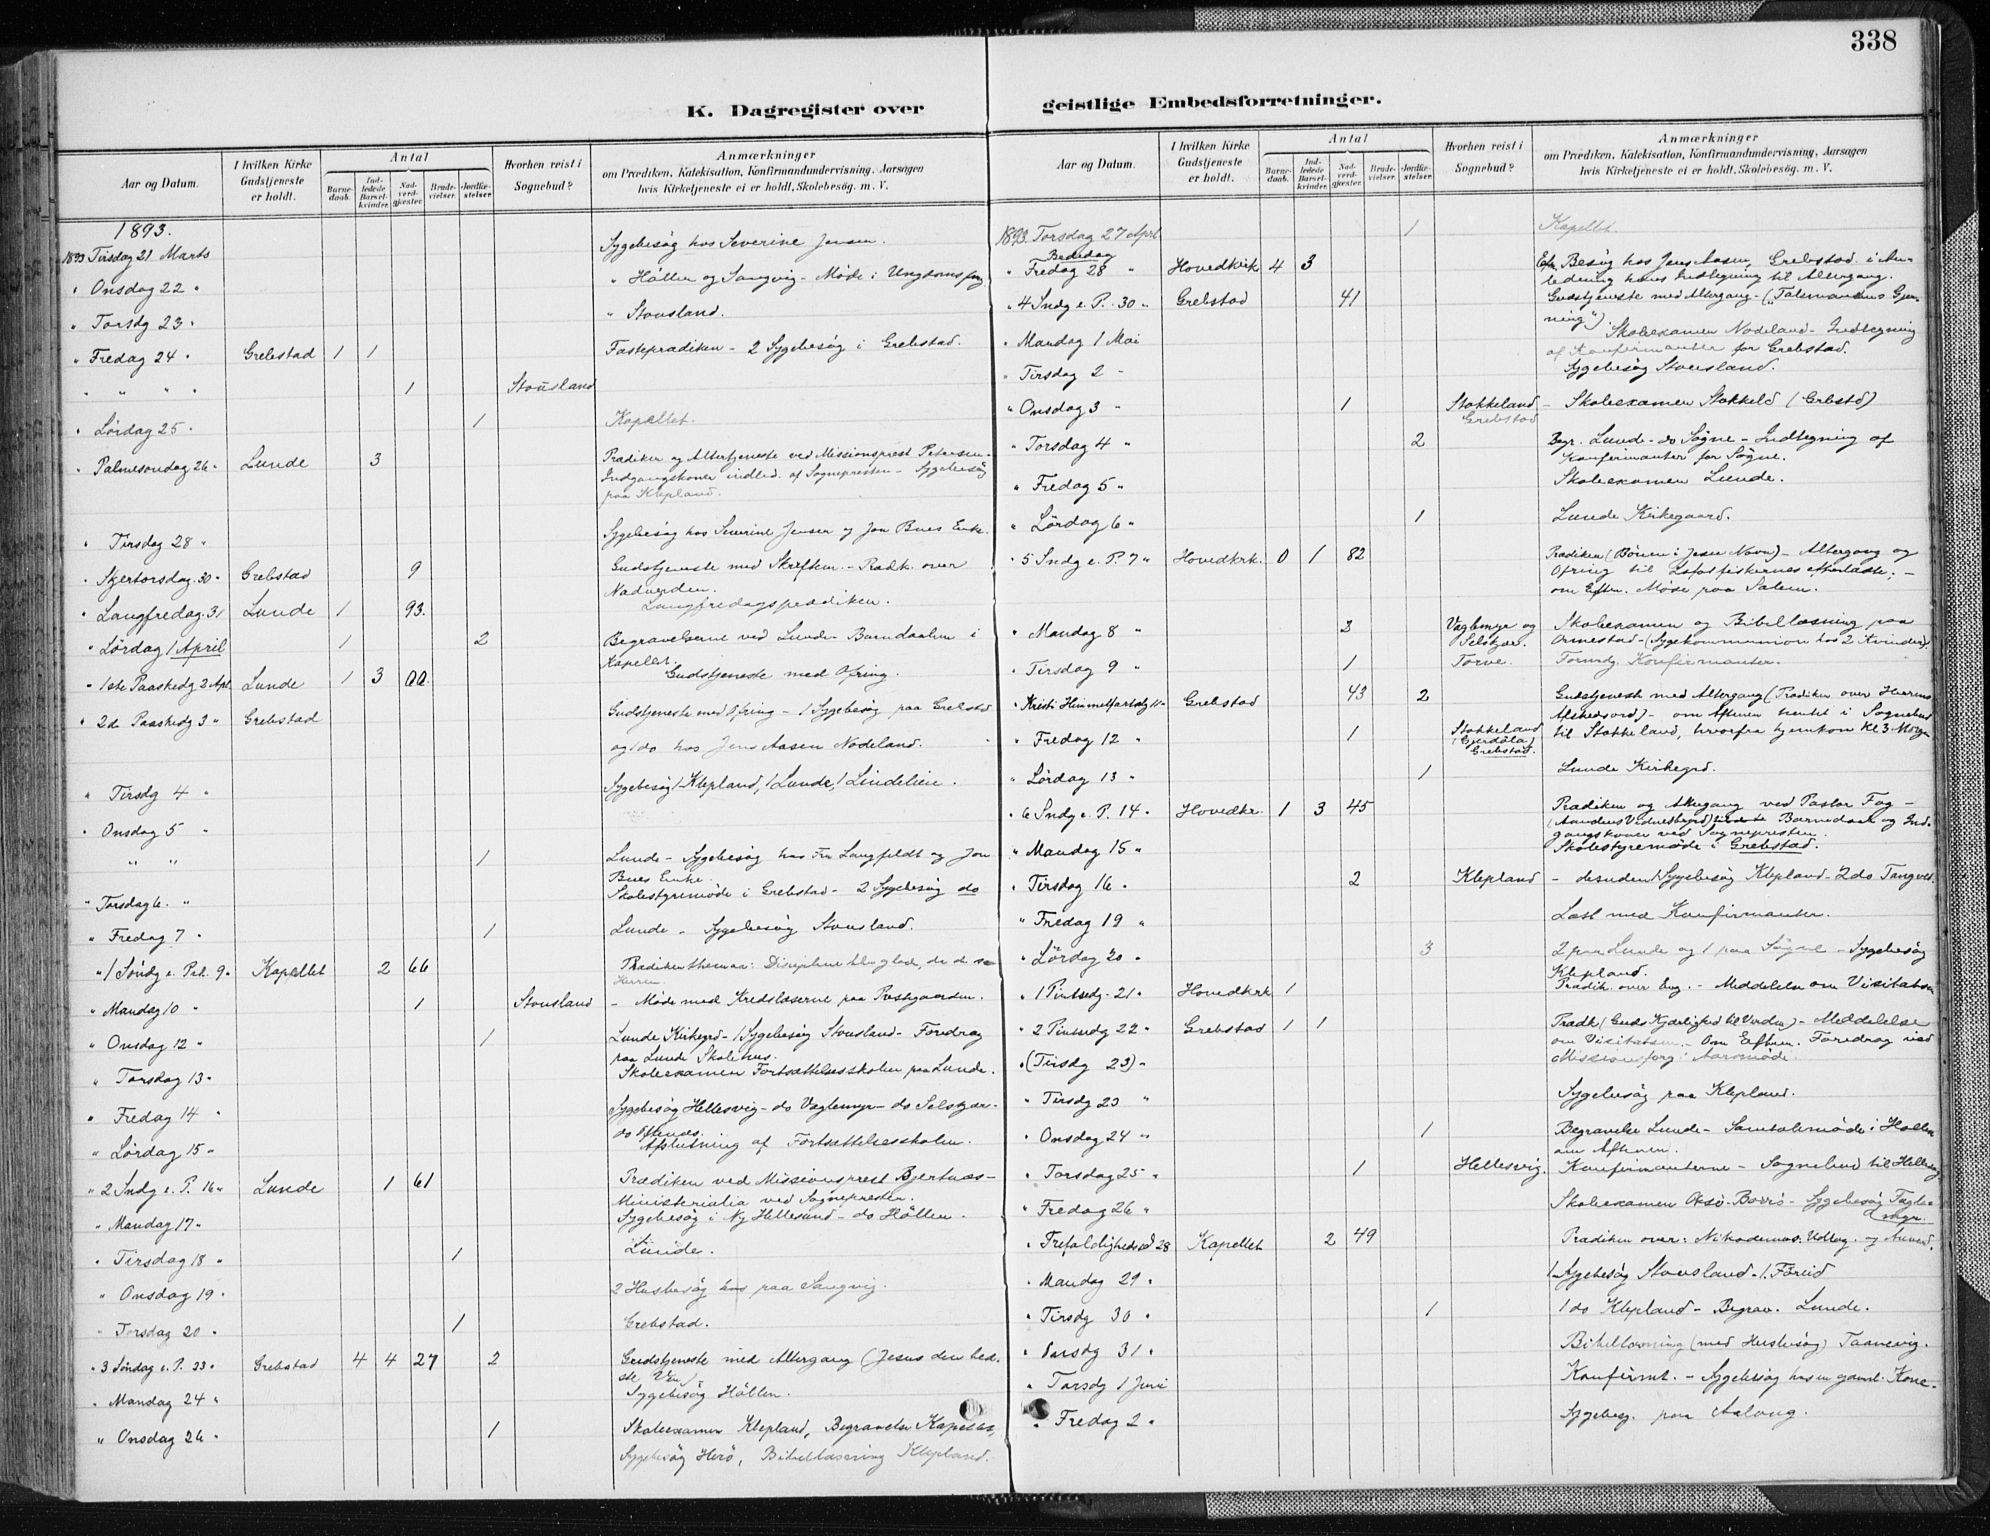 338
K. Dagregister over geistlige Embedsforretninger.
Aar og Datum. I hvilken Kirke Gudstjeneste er holdt. Antal Barne-daab. Ind-ledede Barsel-kvinder. Nad-verd-gjester. Brude-vielser. Jordfæ-stelser. Hvorhen reist i Sognebud? Anmærkninger om Prædiken, Katekisation, Konfirmandundervisning, Aarsagen hvis Kirketjeneste ei er holdt, Skolebesøg. m. V.
1893.
1893 Tirsdag 21 Marts Sygebesøg hos Severine Jensen.
" Onsdag 22 " " Höllen og Sangvig - Møde i Ungdomsforg
" Torsdg 23 " " Stousland.
" Fredag 24 " Grebstad 1 1 Fasteprædiken - 2 Sygebesøg i Grebstad.
" " " " 1 Stousland
" Lördag 25 " 1 Kapellet.
" Palmesondag 26 " Lunde 3 Prædiken og Altertjeneste ved Missionsprest Petersen -
Indgangskoner indled. af Sognepresten - Sygebesøg
paa Klepland.
" Tirsdag 28 " Sygebesøg hos Severine Jensen og Jon Bues Enke.
" Skjertorsdag 30 " Grebstad 9 Gudstjeneste med Skriftem. - Prædk. over
Nadverden.
" Langfredag 31 Lunde 1 93. Langfredagsprædiken.
" Lördag 1 April 1 2 Begravelserne ved Lunde - Barndaaben i
Kapellet.
" 1ste Paaskedg 2 Apl. Lunde 1 3 00. Gudstjeneste med Ofring.
" 2d Paaskedg 3 " Grebstad Gudstjeneste med Ofring - 1 Sygebesøg paa Grebstad
og 1 do hos Jens Aasen Nodeland.
" Tirsdg 4 " Sygebesøg 1 Klepland, 1 Lunde, 1 Lindelien.
" Onsdag 5 "
" " 1 Lunde - Sygebesøg hos Fru Langfeldt og Jon
Bues Enke.
" Torsdag 6. " Skolestyremøde i Grebstad - 2 Sygebesøg do
" Fredag 7 " 1 Lunde - Sygebesøg Stousland.
" 1 Söndg e. Psk. 9 " Kapellet 2 66 Prædikenthema: Disciplene bleve glade, da de saa
Herren.
" Mandag 10 " 1 Stousland - Møde med Kredslæserne paa Prestgaarden.
" Onsdag 12 " 1 Lunde Kirkegrd - 1 Sygebesøg Stousland - Foredrag
paa Lunde Skolehus.
" Torsdag 13 " Skoleexamen Fortsættelsesskolen paa Lunde.
" Fredag 14 " Sygebesøg Hellesvig - do Vaglemyr - do Selskjær -
do Oftenæs.
" Lördag 15 " Afslutning af Fortsættelsesskolen.
" 2 Sndg e. P. 16 " Lunde 1 61 Prædiken ved Missionsprest Bjertnæs -
Ministerialia ved Sognepresten.
" Mandag 17 " Sygebesøg i Ny Hellesund - do Höllen.
" Tirsdag 18 " 1 Lunde.
" Onsdag 19 " 2 Husbesøg hos paa Sangvig.
" Torsdag 20 " 1 Grebstad.
" 3 Söndag e. P. 23 " Grebstad 4 4 27 2 Gudstjeneste med Altergang (Jesus den bed-
ste Ven)
" Mandag 24 " Sygebesøg Höllen.
" Onsdag 26 " 1 Skoleexamen Klepland, Begravelse Kapellet,
Sygebesøg Herö, Bibellæsning Klepland.
Aar og Datum. I hvilken Kirke Gudstjeneste er holdt. Antal Barne-daab. Ind-ledede Barsel-kvinder. Nad-verd-gjester. Brude-vielser. Jordfæ-stelser. Hvorhen reist i Sognebud? Anmærkninger om Prædiken, Katekisation, Konfirmandundervisning, Aarsagen hvis Kirketjeneste ei er holdt, Skolebesøg. m. V.
1893. Torsdag 27 April 1 Kapellet.
Bededag
" Fredag 28 " Hovedkirk 4 3 Efr. Besøg hos Jens Aasen, Grebstad i An-
ledning hans Indtegning til Altergang.
" 4 Sndg e. P. 30 " Grebstad 41 Gudstjeneste med Altergang - ("Talsmandens Gjer-
ning")
" Mandag 1 Mai Skoleexamen Nodeland - Indtegning
af Konfirmanter for Grebstad.
" Tirsdag 2 " Sygebesøg Stousland.
" Onsdag 3 " 1 Stokkeland Grebstad - Skoleexamen Stokkeld (Grbstd)
" Torsdag 4 " 2 Begr. Lund - do Søgne - Indtegning af
Konfirmanter for Søgne.
" Fredag 5 " Skoleexamen Lunde.
" Lördag 6 " 1 Lunde Kirkegaard.
" 5 Sndg e. P. 7 " Hovedkrk. 0 1 82 Prædiken (Bönnen i Jesu Navn) - Altergang og
Ofring til Lofotfiskernes efterladte; -
om Eftm. Møde paa Salem.
" Mandag 8 " 2 Vaglemyr og Selskjær. Skoleexamen og Bibellæsning paa
Ormestad - (Sygekommunion hos 2 Kvinder).
" Tirsdag 9 " 1 Torve. Formdg. Konfirmanter.
" Kristi Himmelfartsdg 11 " Grebstad 43 2 Gudstjenest med Altergang (Prædiken over Herrens
Afskedsord) - om Aftenen hentet i Sognebud
" Fredag 12 " 1 Stokkeland Grebstad til Stokkeland, hvorfra hjemkom Kl 3 Morgen
" Lördag 13 " 1 Lunde Kirkegrd.
" 6 Sndg e. P. 14 " Hovedkr. 1 3 45 Prædiken og Altergang ved Pastor Fog -
(Aandens Vidnesbyrd) Barnedaab og Ind-
gangskoner ved Sognepresten.
" Mandag 15 " Skolestyremøde i Grebstad.
" Tirsdag 16 " 2 Klepland - desuden 1 Sygebesøg Klepland - 2 do Tangved.
" Fredag 19 " Læst med Konfirmanter.
" Lördag 20 " 3 2 paa Lunde og 1 paa Søgne - Sygebesøg
Klepland.
" 1 Pintsedg. 21 " Hovedkrk 1 Prædik. over Evg. - Meddelelse om Visitatsen
" 2 Pintsedg 22 " Grebstad 1 1 Prædk (Guds Kjærlighed til Verden) - Meddelelse
om Visitatsen. Om Eftm. Foredrag ved
" (Tirsdg 23) " Missionsforg: Aarsmøde.
" Tirsdg 23 " Sygebesøg paa Klepland.
" Onsdag 24 " 1 Begravelse Lunde - Samtalemøde i Høllen
om Aftenen.
" Torsdag 25 " 1 Hellesvig. Konfirmanterne - Sognebud til Hellesvig
" Fredag 26 " Skoleexamen Oksö-Borö - Sygebesøg Tagle-
myr.
" Trefoldighedssd 28 Kapellet 2 49 Prædiken over: Nikodemus. Udlæg. og Anvend.
" Mandag 29 " 1 Sygebesøg Stousland - 1. Föreid
" Tirsdg 30 " 1 1 do Klepland - Begrav. Lunde.
" Onsdg 31 " Bibellæsning (med Husbesøg) Taanevig.
" Torsdg 1 Juni Konfirmt. - Sygebesøg hos en gammel Kone.
" Fredag 2 " Sygebesg. paa Aalong.